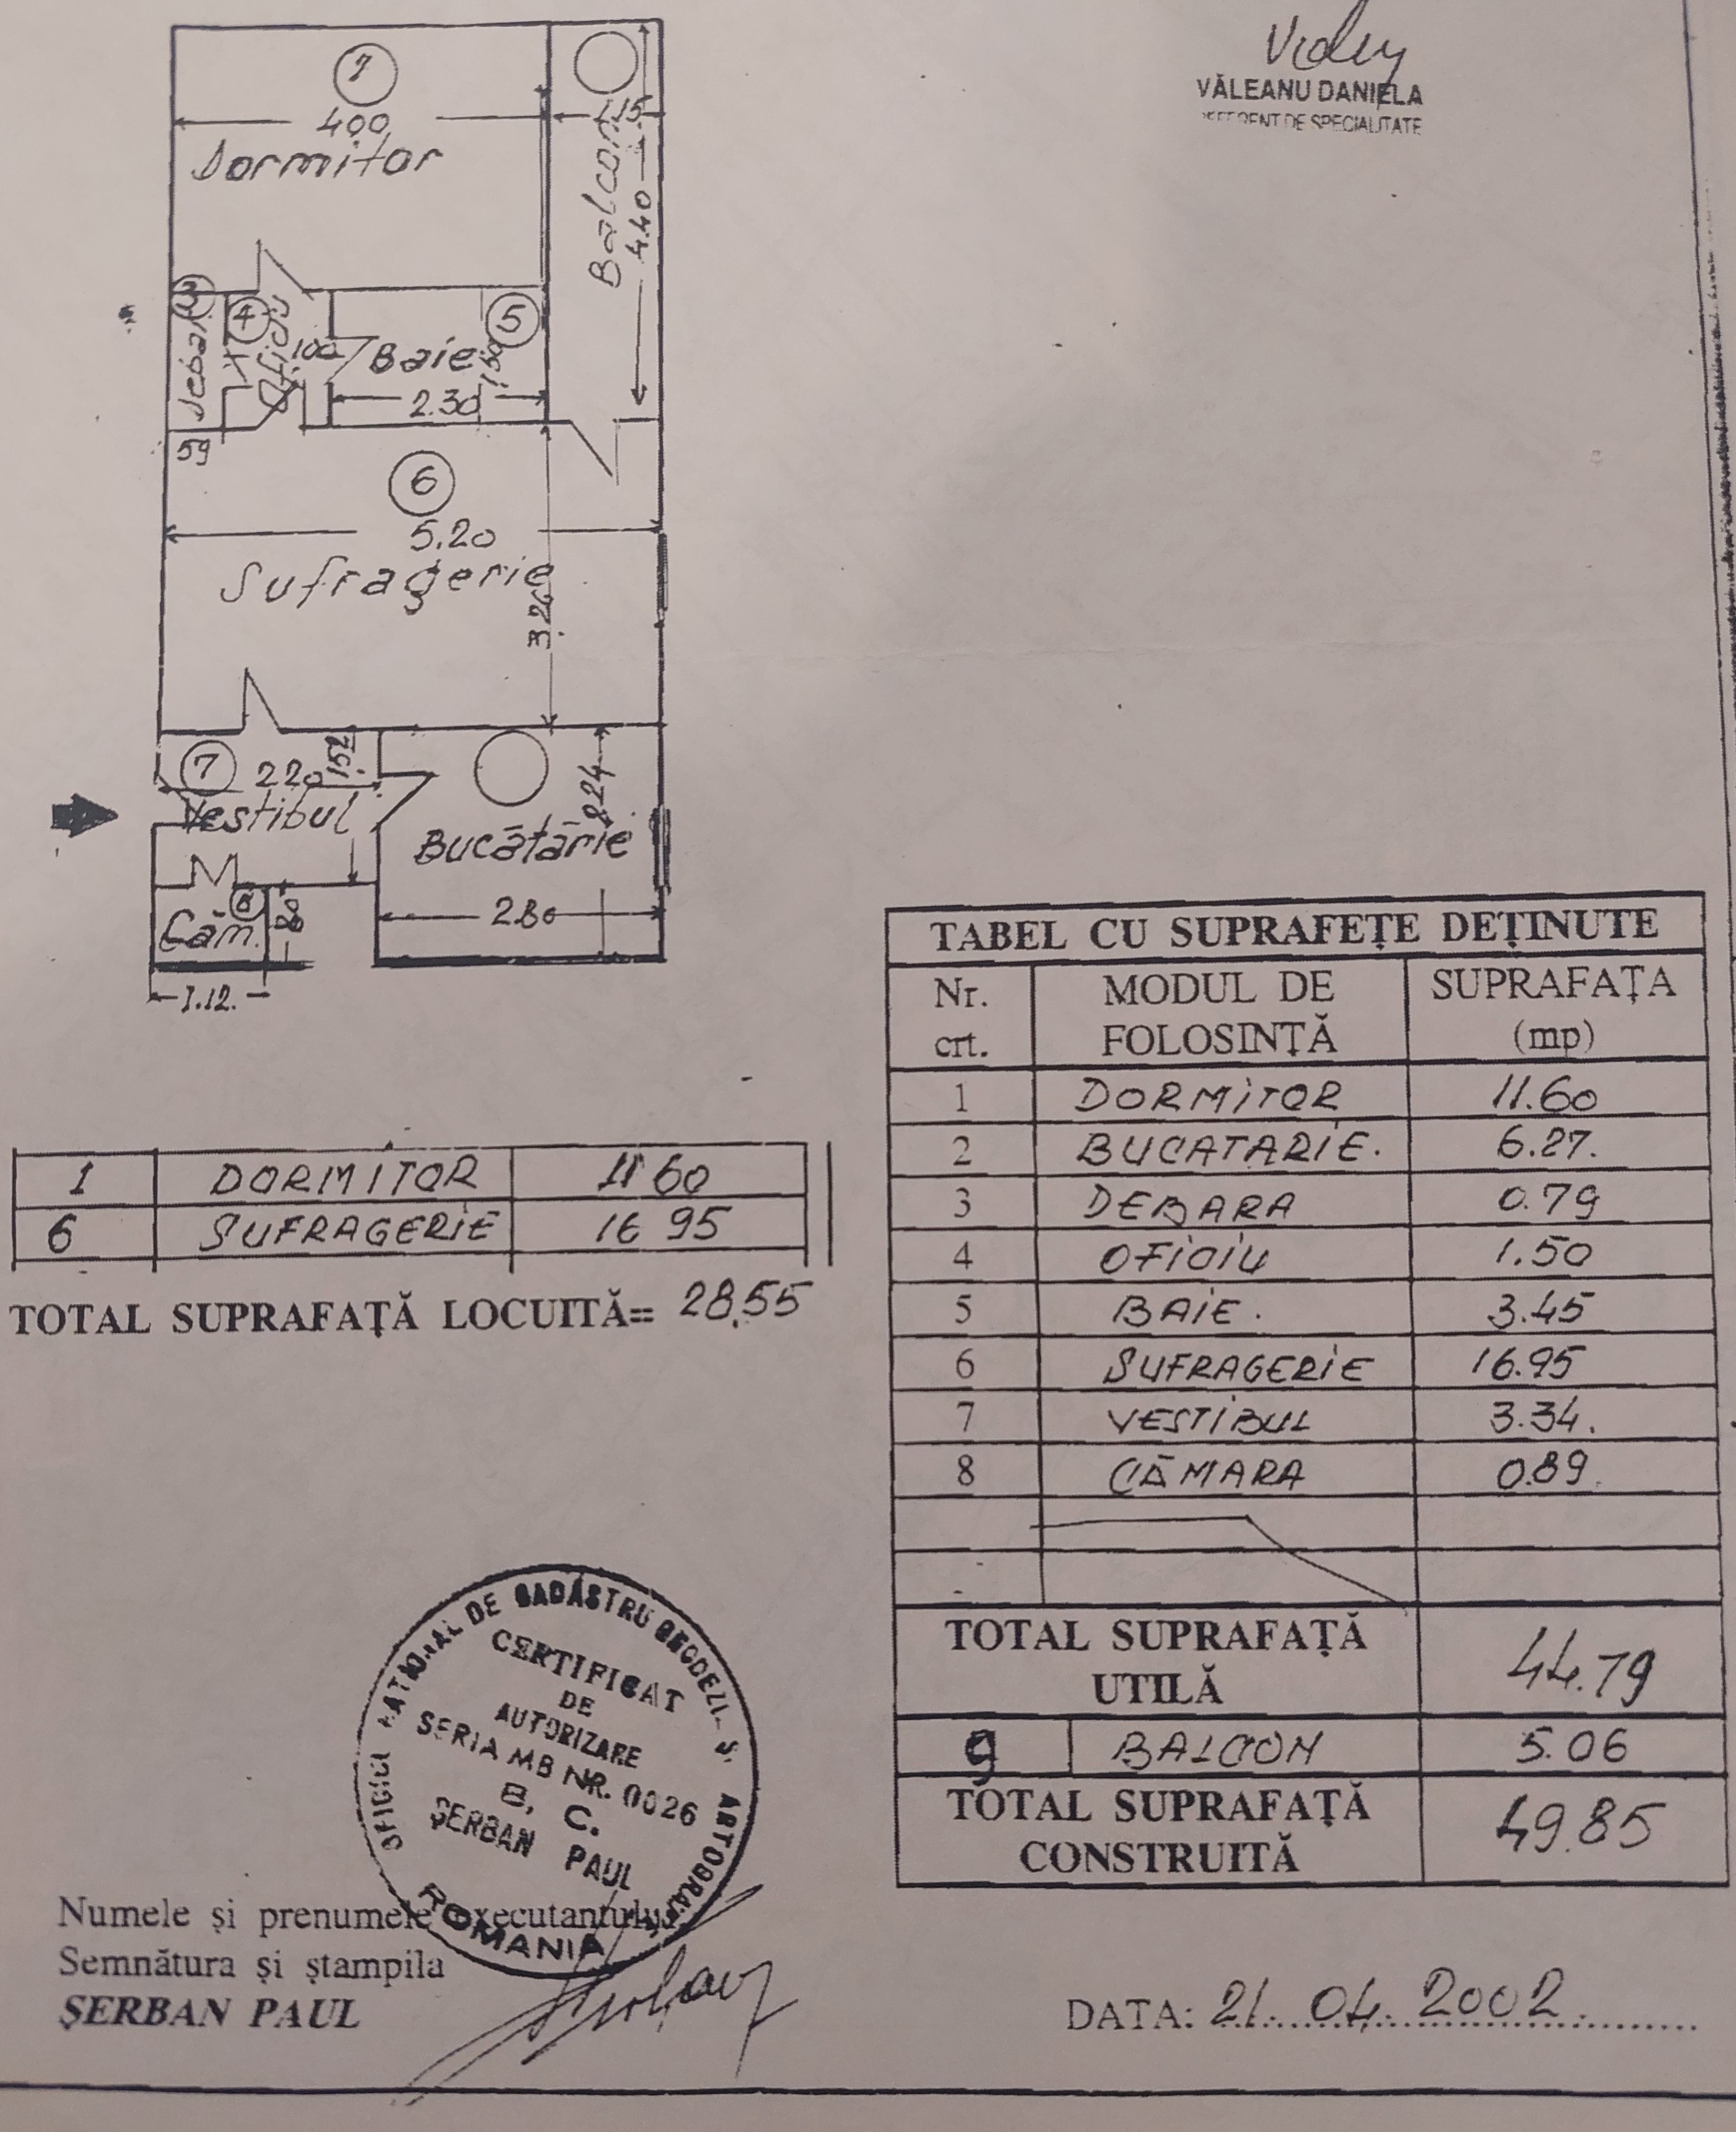 VĂLEANU DANIELA
REFERENT DE SPECIALITATE
1
400
Dormitor
115
Balcon
4.40
3
Debara
59
4
Oficiu
100
5
Baie
150
2.30
6
5.20
Sufragerie
3.26
7
220
152
Vestibul
Bucătărie
224
2.80
8
Căm.
80
1.12.
1 DORMITOR 11 60
6 SUFRAGERIE 16 95
TOTAL SUPRAFAȚĂ LOCUITĂ= 28,55
TABEL CU SUPRAFEȚE DEȚINUTE
Nr. crt. MODUL DE FOLOSINȚĂ SUPRAFAȚA (mp)
1 DORMITOR 11.60
2 BUCATARIE. 6.27.
3 DEBARA 0.79
4 OFICIU 1.50
5 BAIE. 3.45
6 SUFRAGERIE 16.95
7 VESTIBUL 3.34.
8 CĂMARA 0.89
TOTAL SUPRAFAȚĂ UTILĂ 44.79
9 BALCON 5.06
TOTAL SUPRAFAȚĂ CONSTRUITĂ 49.85
OFICIUL NAȚIONAL DE CADASTRU GEODEZIE
CERTIFICAT
DE
AUTORIZARE
SERIA MB NR. 0026
B, C.
ȘERBAN PAUL
ROMANIA
Numele și prenumele executantului
Semnătura și ștampila
ȘERBAN PAUL
DATA: 21. 04. 2002